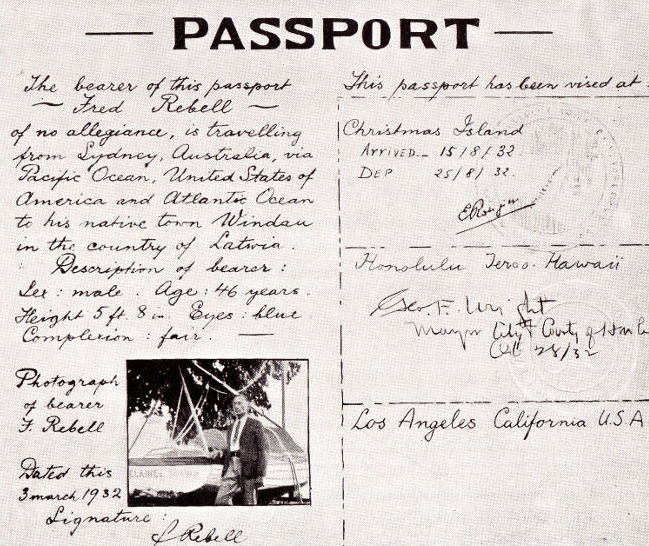 PASSPORT
The bearer of this passport
Fred Rebell
of no allegiance, is travelling
from Sydney, Australia, via
Pacific Ocean, United States of
America and Atlantic Ocean
to his native town Windau
in the country of Latvia.
Description of bearer:
Sex: male. Age: 46 years.
Height 5 ft. 8 in. Eyes: blue
Complexion: fair.
Photograph
of bearer
F. Rebell
ELAINE
Dated this
3 march 1932
Signature:
F Rebell
This passport has been vised at
Christmas Island
ARRIVED - 15/8/32
DEP 25/8/32.
Honolulu Terr. Hawaii
Geo. F. Wright
Mayor City & County of
Oct 28/32
Los Angeles California U.S.A